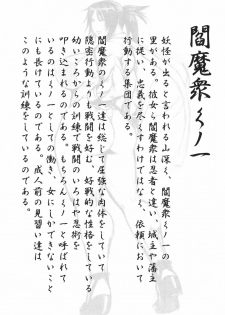 閻魔衆くノ一
妖怪が出ると言われる山深く、閻魔衆くノ一の
里がある。彼女ら閻魔衆は忍者と違い、城主や藩主
に従い、忠義を尽くすわけではなく、依頼において
行動する集団である。
閻魔衆のくノ一達は総じて屈強な肉体をしていて
隠密行動よりも戦闘を好む、好戦的な性格をしている
幼いころからの訓練で戦闘のいろはや忍術を
叩き込まれるのである。もちろんくノ一と呼ばれて
いるのはくノ一としての働き、女にしかできないこと
にも長けているのである。成人前の見習い達は
このような訓練をしている。